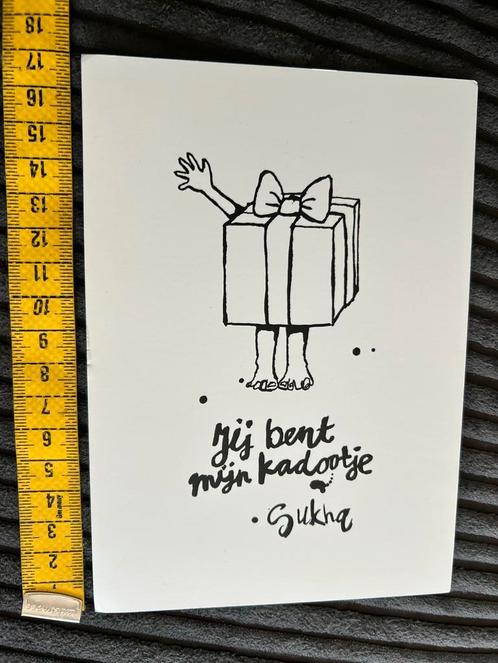 18
17
16
15
14
13
12
11
10
9
8
7
6
5
4
3
2
Jij bent
mijn kadootje
Sukha